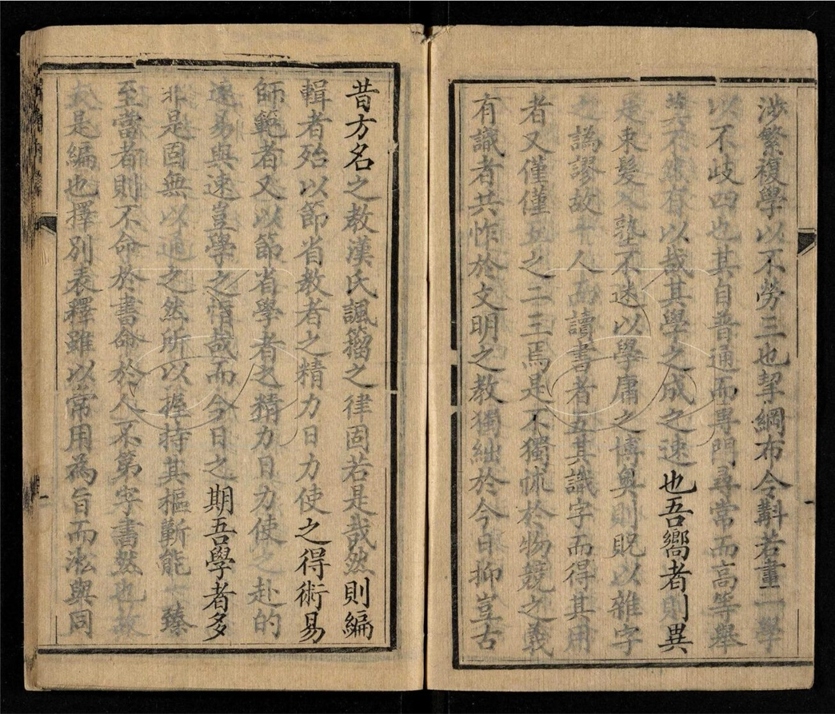 涉繁複學以不勞三也挈綱布令斠若畫一學
以不歧四也其自普通而專門尋常而高等舉
莫不有以哉其學之成之速也吾嚮者則異
是束髮入塾不迷以學庸之博奧則眂以雜字
之譌謬故十人而讀書者五其識字而得其用
者又僅僅五之二三焉是不獨怵於物競之義
有識者共怍於文明之教獨絀於今日抑豈古
昔方名之教漢氏諷籀之律固若是哉然則編
輯者殆以節省教者之精力日力使之得術易
師範者又以節省學者之精力日力使之赴的
速易與速豈學之惰哉而今日之期吾學者多
非是固無以通之然所以握持其樞靳能臻
至當者則不命於書命於人不第字書然也故
是編也擇別表釋雖以常用為旨而淞與同